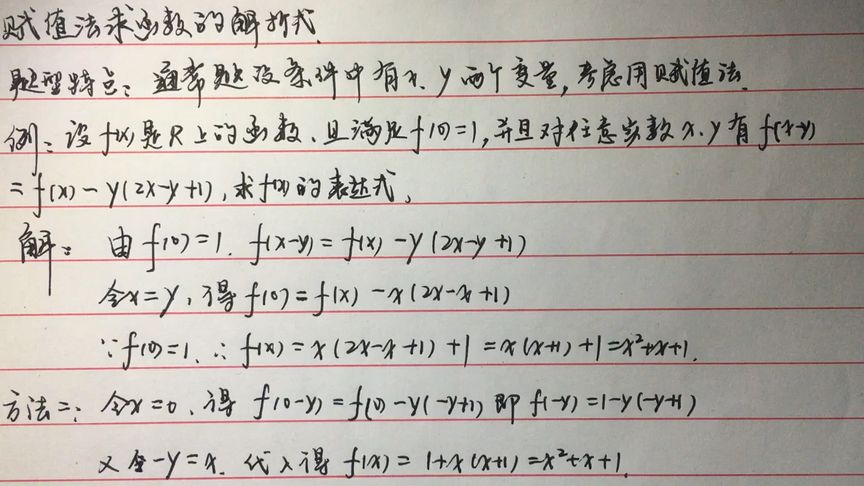 赋值法求函数的解析式.
题型特点: 通常题设条件中有x、y两个变量, 考虑用赋值法.
例: 设f(x)是R上的函数、且满足f(0)=1, 并且对任意实数x、y有f(x-y)
=f(x)-y(2x-y+1), 求f(x)的表达式。
解: 由f(0)=1. f(x-y)=f(x)-y(2x-y+1)
令x=y, 得f(0)=f(x)-x(2x-x+1)
∵f(0)=1. ∴f(x)=x(2x-x+1)+1=x(x+1)+1=x²+x+1.
方法二: 令x=0、得 f(0-y)=f(0)-y(-y+1) 即 f(-y)=1-y(-y+1)
又令-y=x. 代入得 f(x)=1+x(x+1)=x²+x+1.